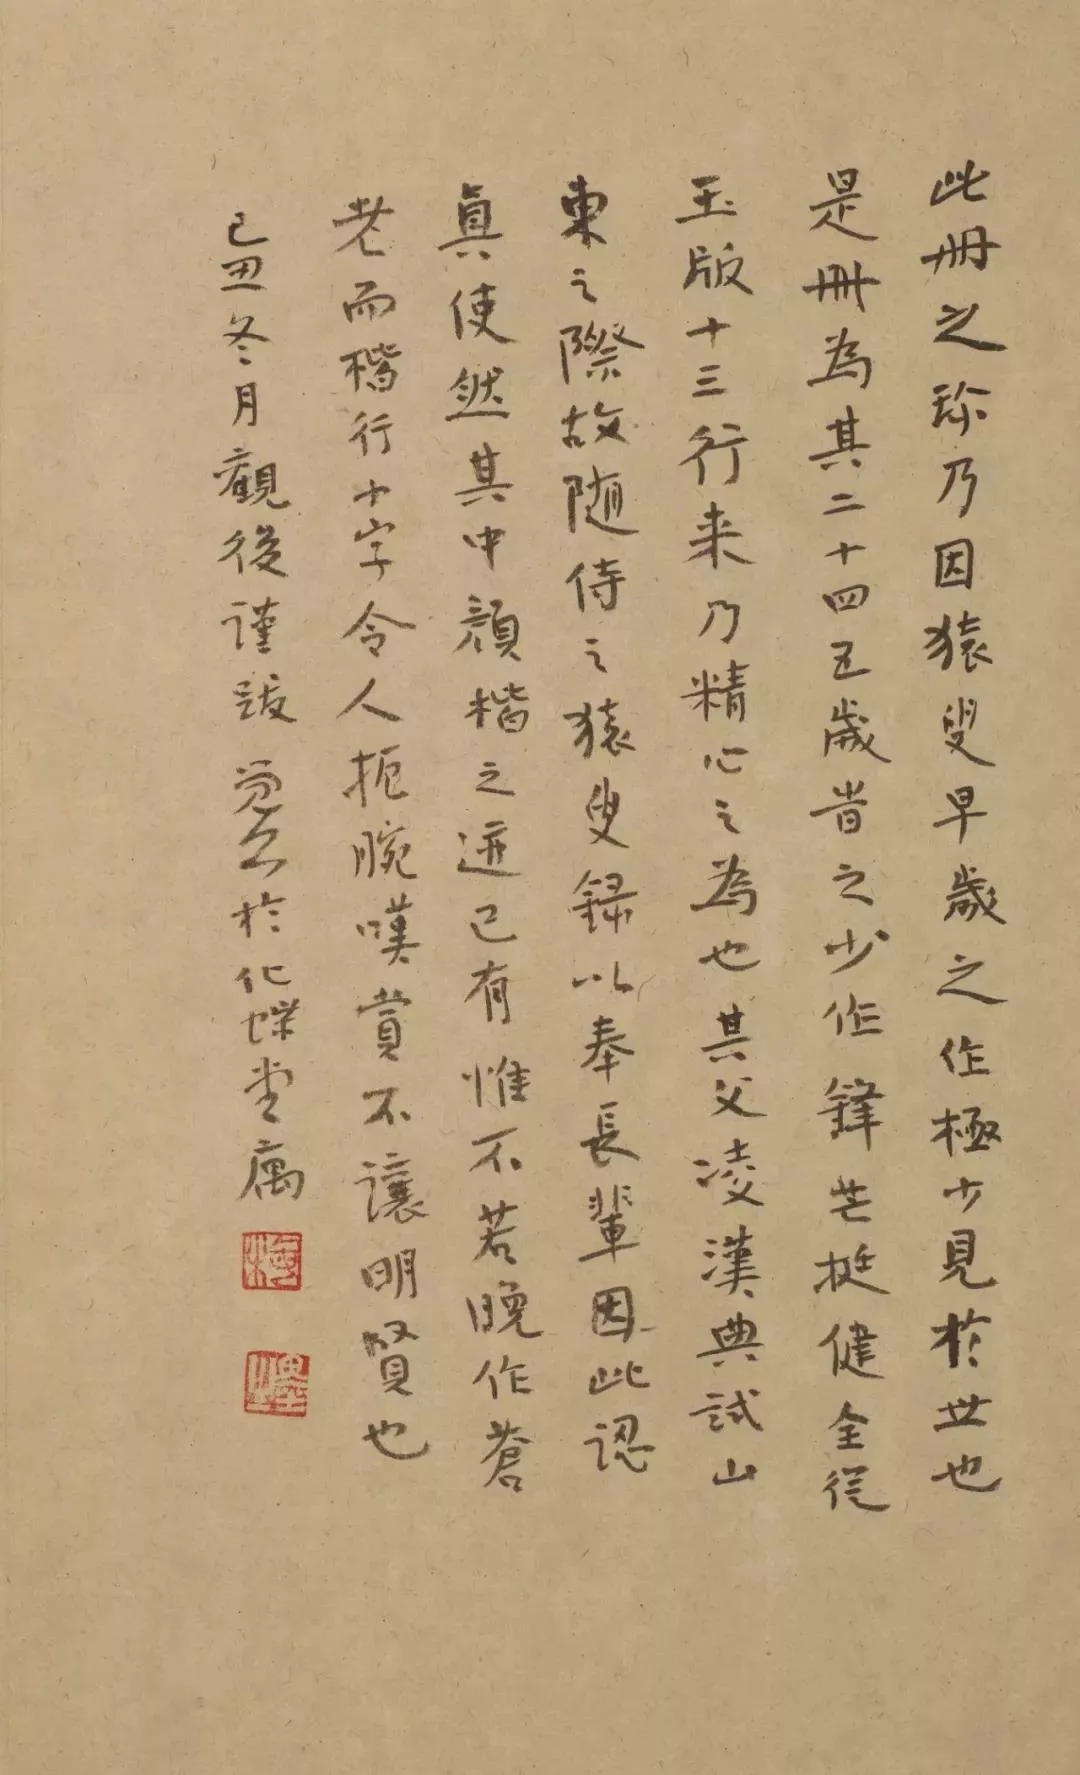 此冊之珎乃因猿叟早歲之作極少見於世也
是冊為其二十四五歲昔之少作鋒芒挺健全從
玉版十三行来乃精心之為也其父凌漢典試山
東之際故随侍之猿叟録以奉長輩因此認
真使然其中顏楷之迹已有惟不若晚作蒼
老而楷行小字令人扼腕嘆賞不讓明賢也
己丑冬月觀後謹跋於化蝶堂寓